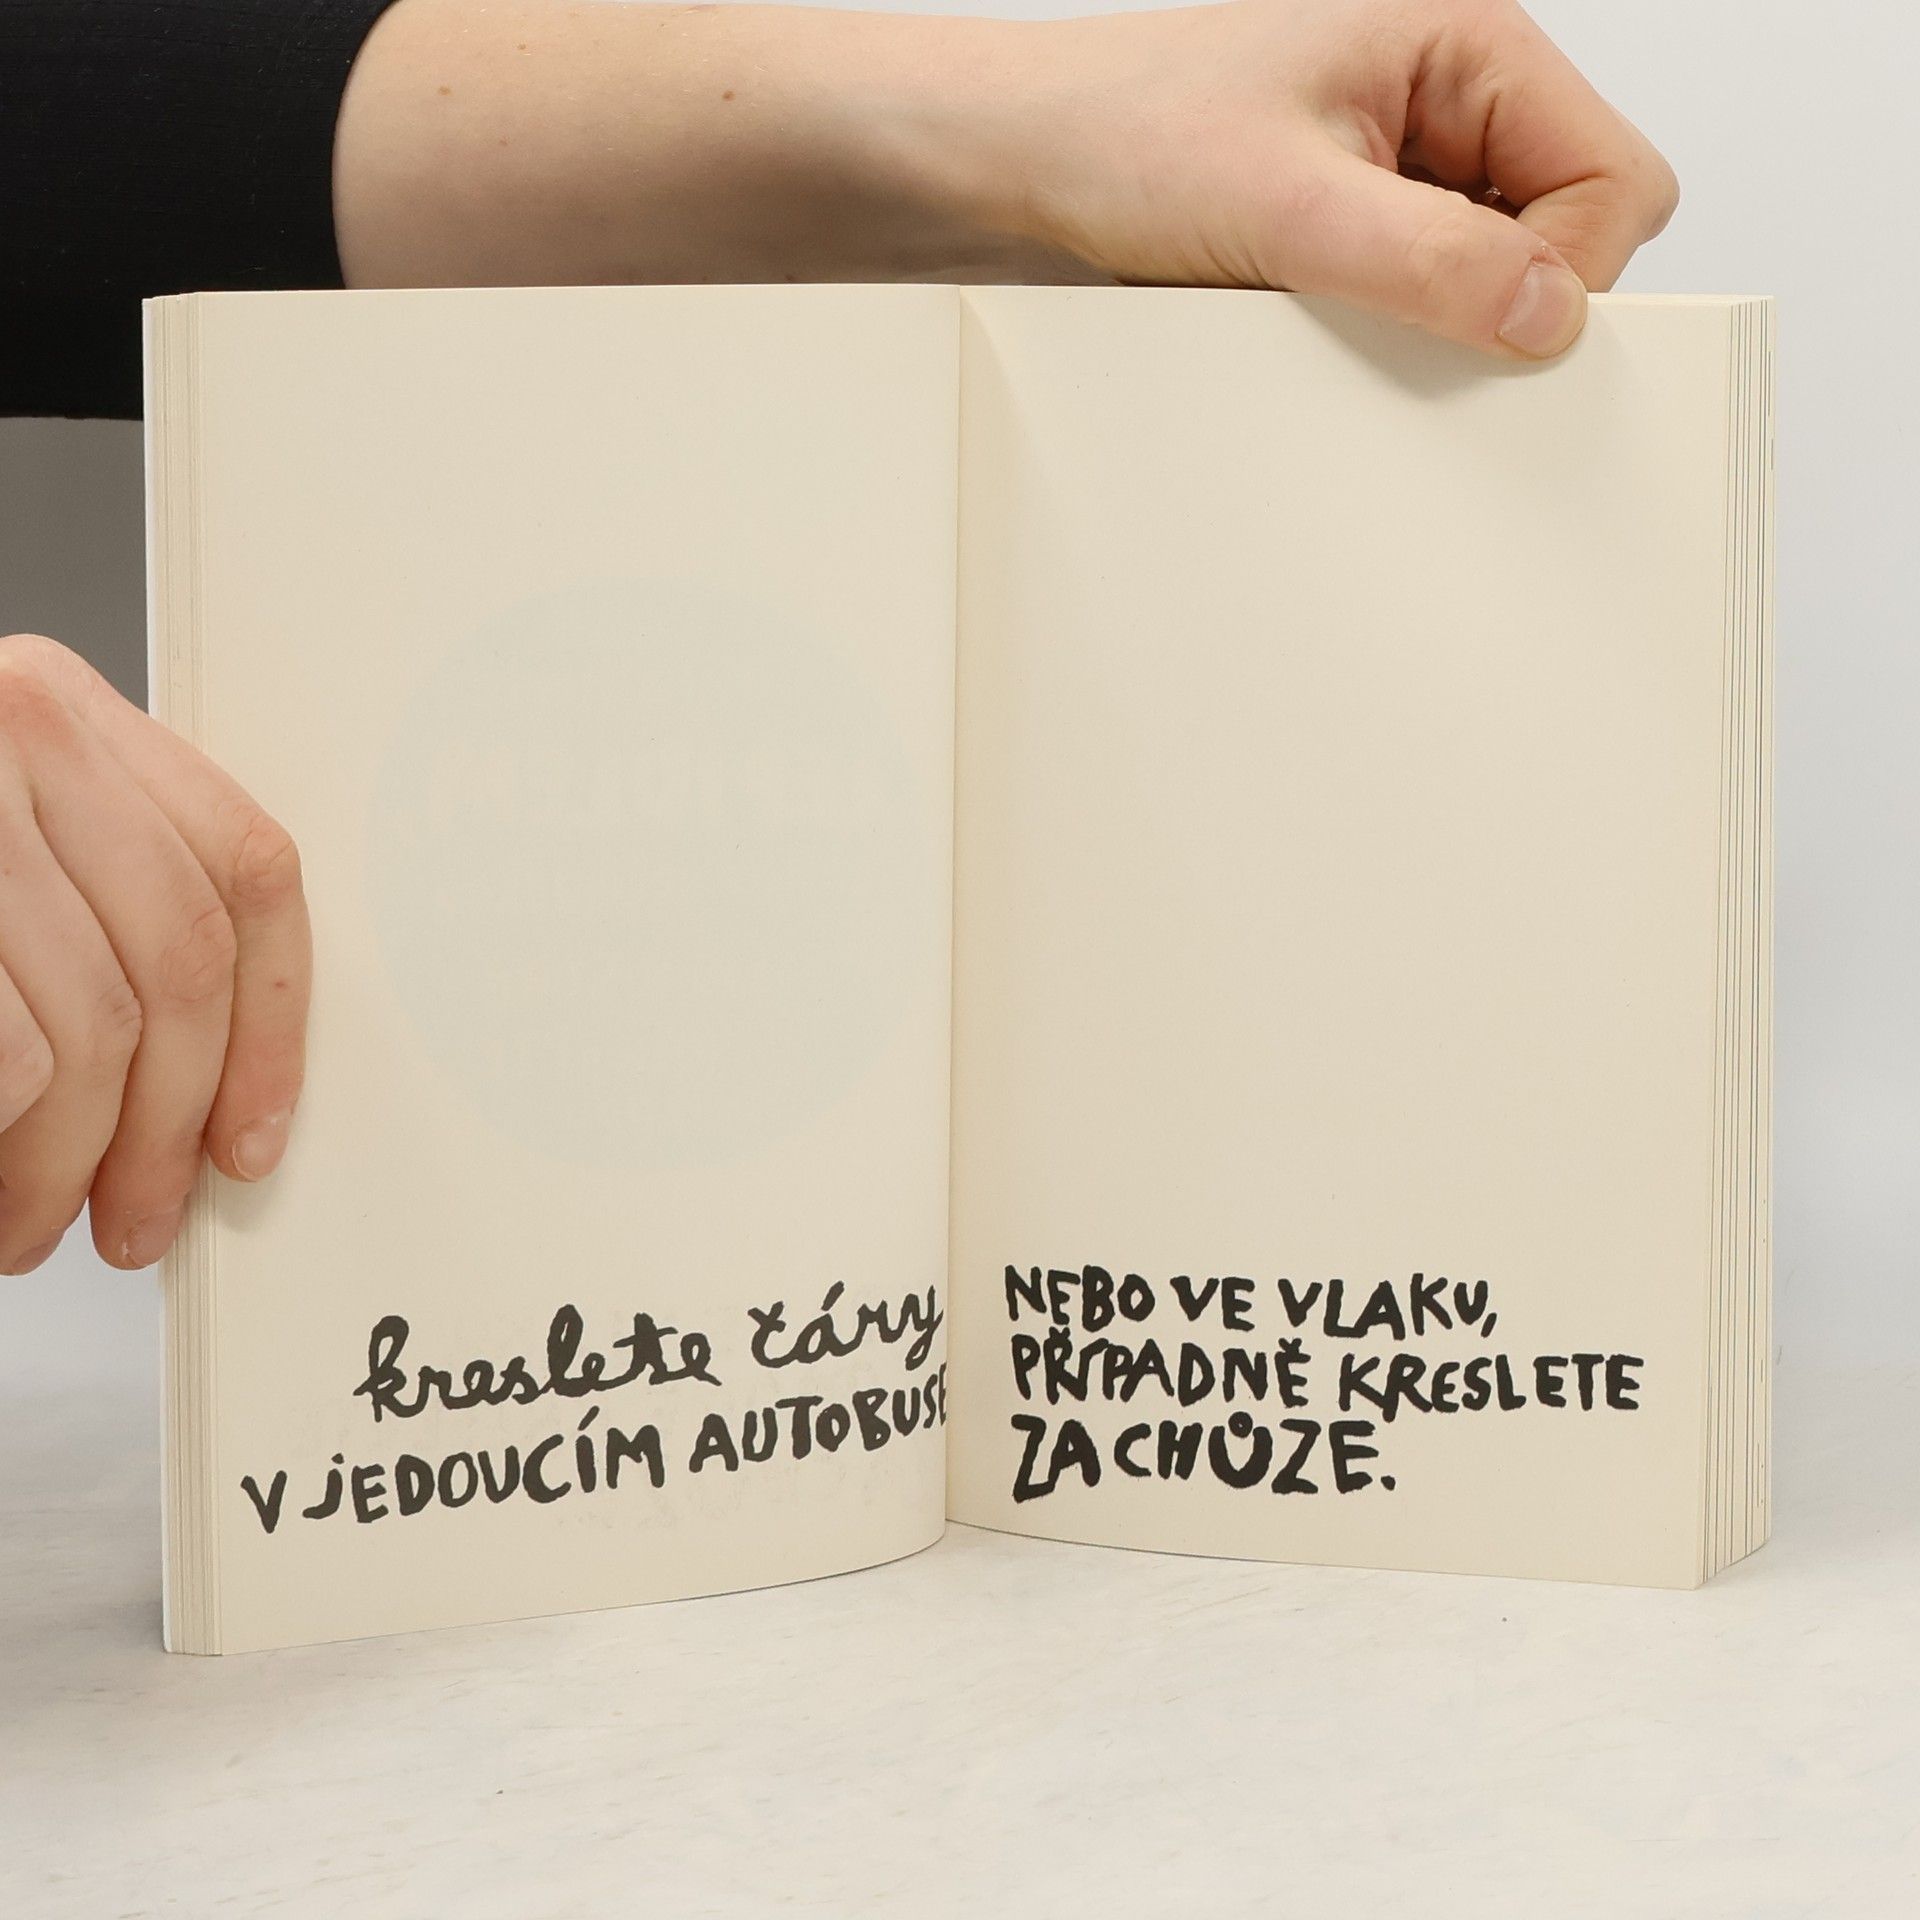 kreslete čáry
V jEDOUCÍM AUTOBUSE
NEBO VE VLAKU,
PŘÍPADNĚ KRESLETE
ZA CHŮZE.